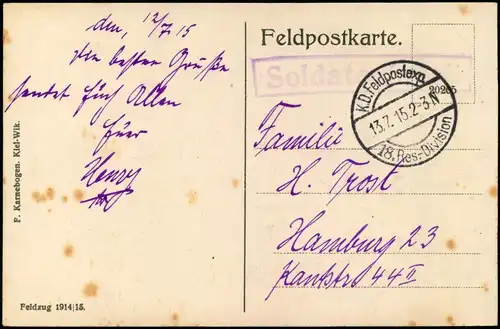 den, 12/7 15
Die besten Grüße
sendet Euch Allen
Euer
Henry
P. Karnebogen. Kiel-Wik.
Feldzug 1914|15.
Feldpostkarte.
Soldaten
20285
K.D. Feldpostexp.
13.7.15. 2-3 N
18. Res.-Division
Familie
H. Trost
Hamburg 23
Kantstr 44 II